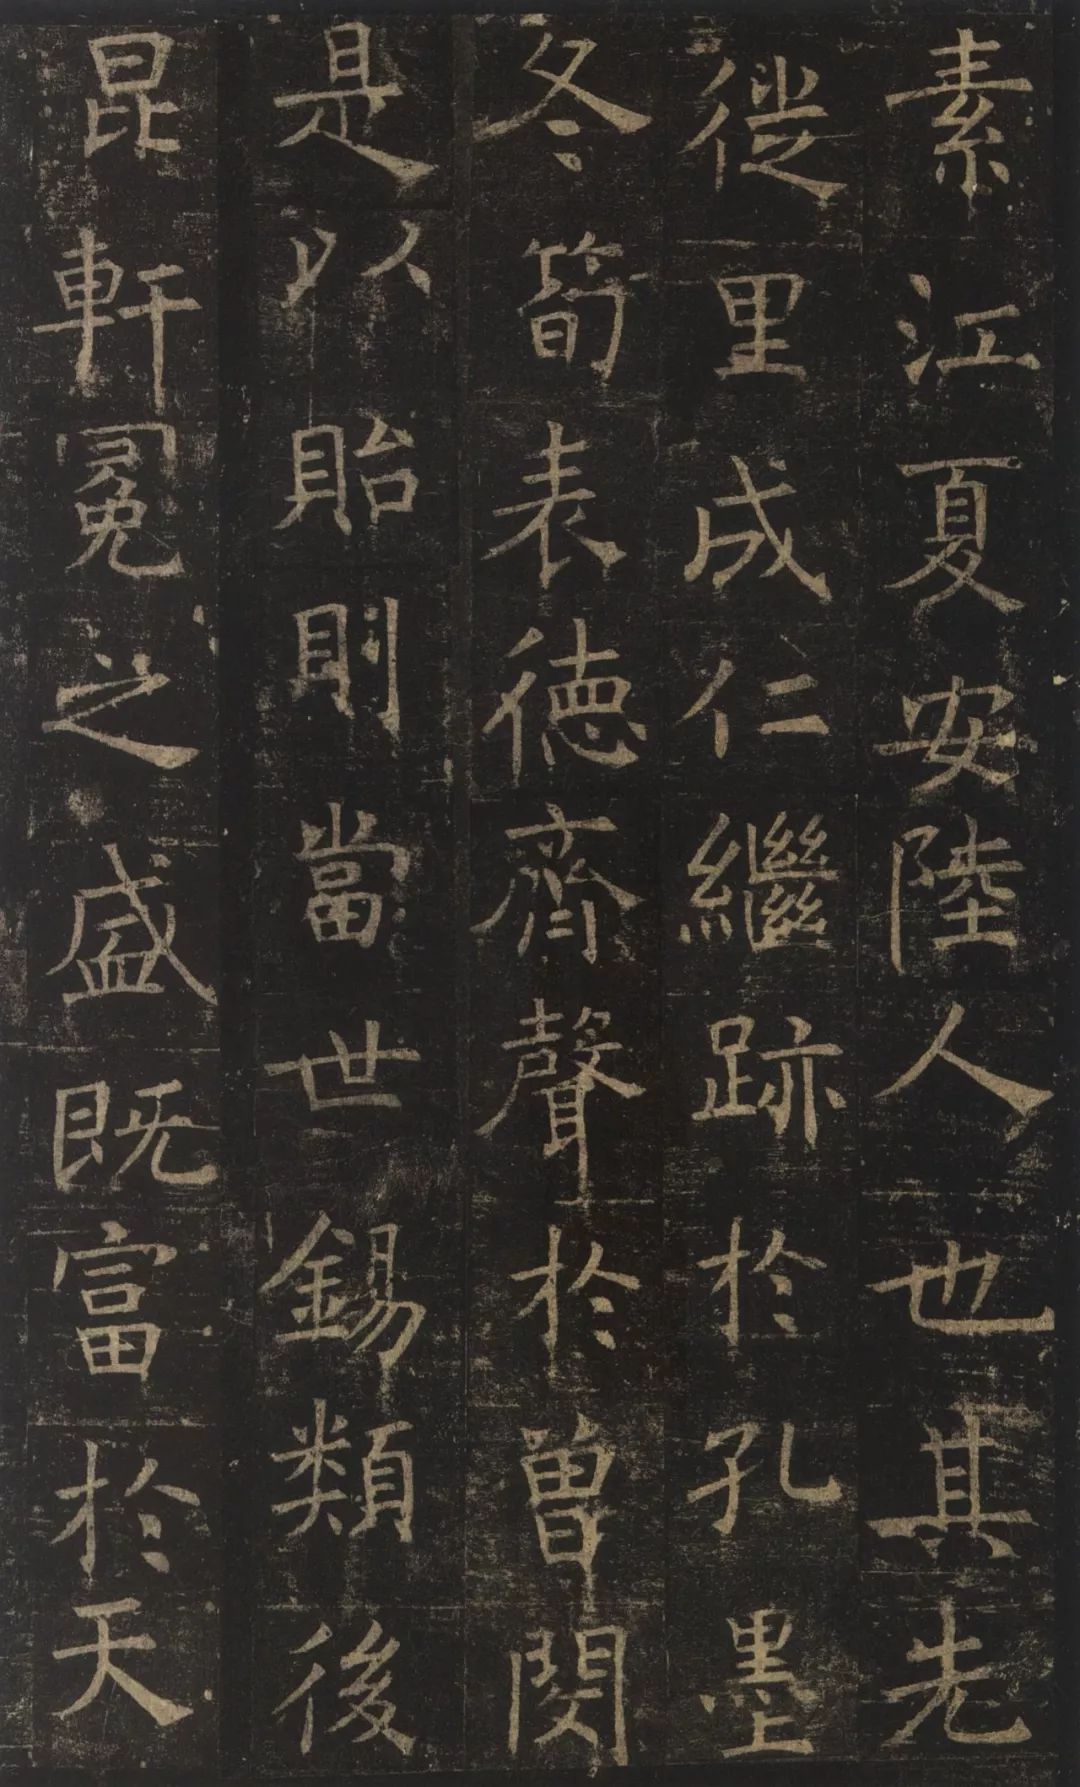 素江夏安陸人也其先
徙里成仁繼跡於孔墨
冬笋表德齊聲於曾閔
是以貽則當世錫類後
昆軒冕之盛既富於天